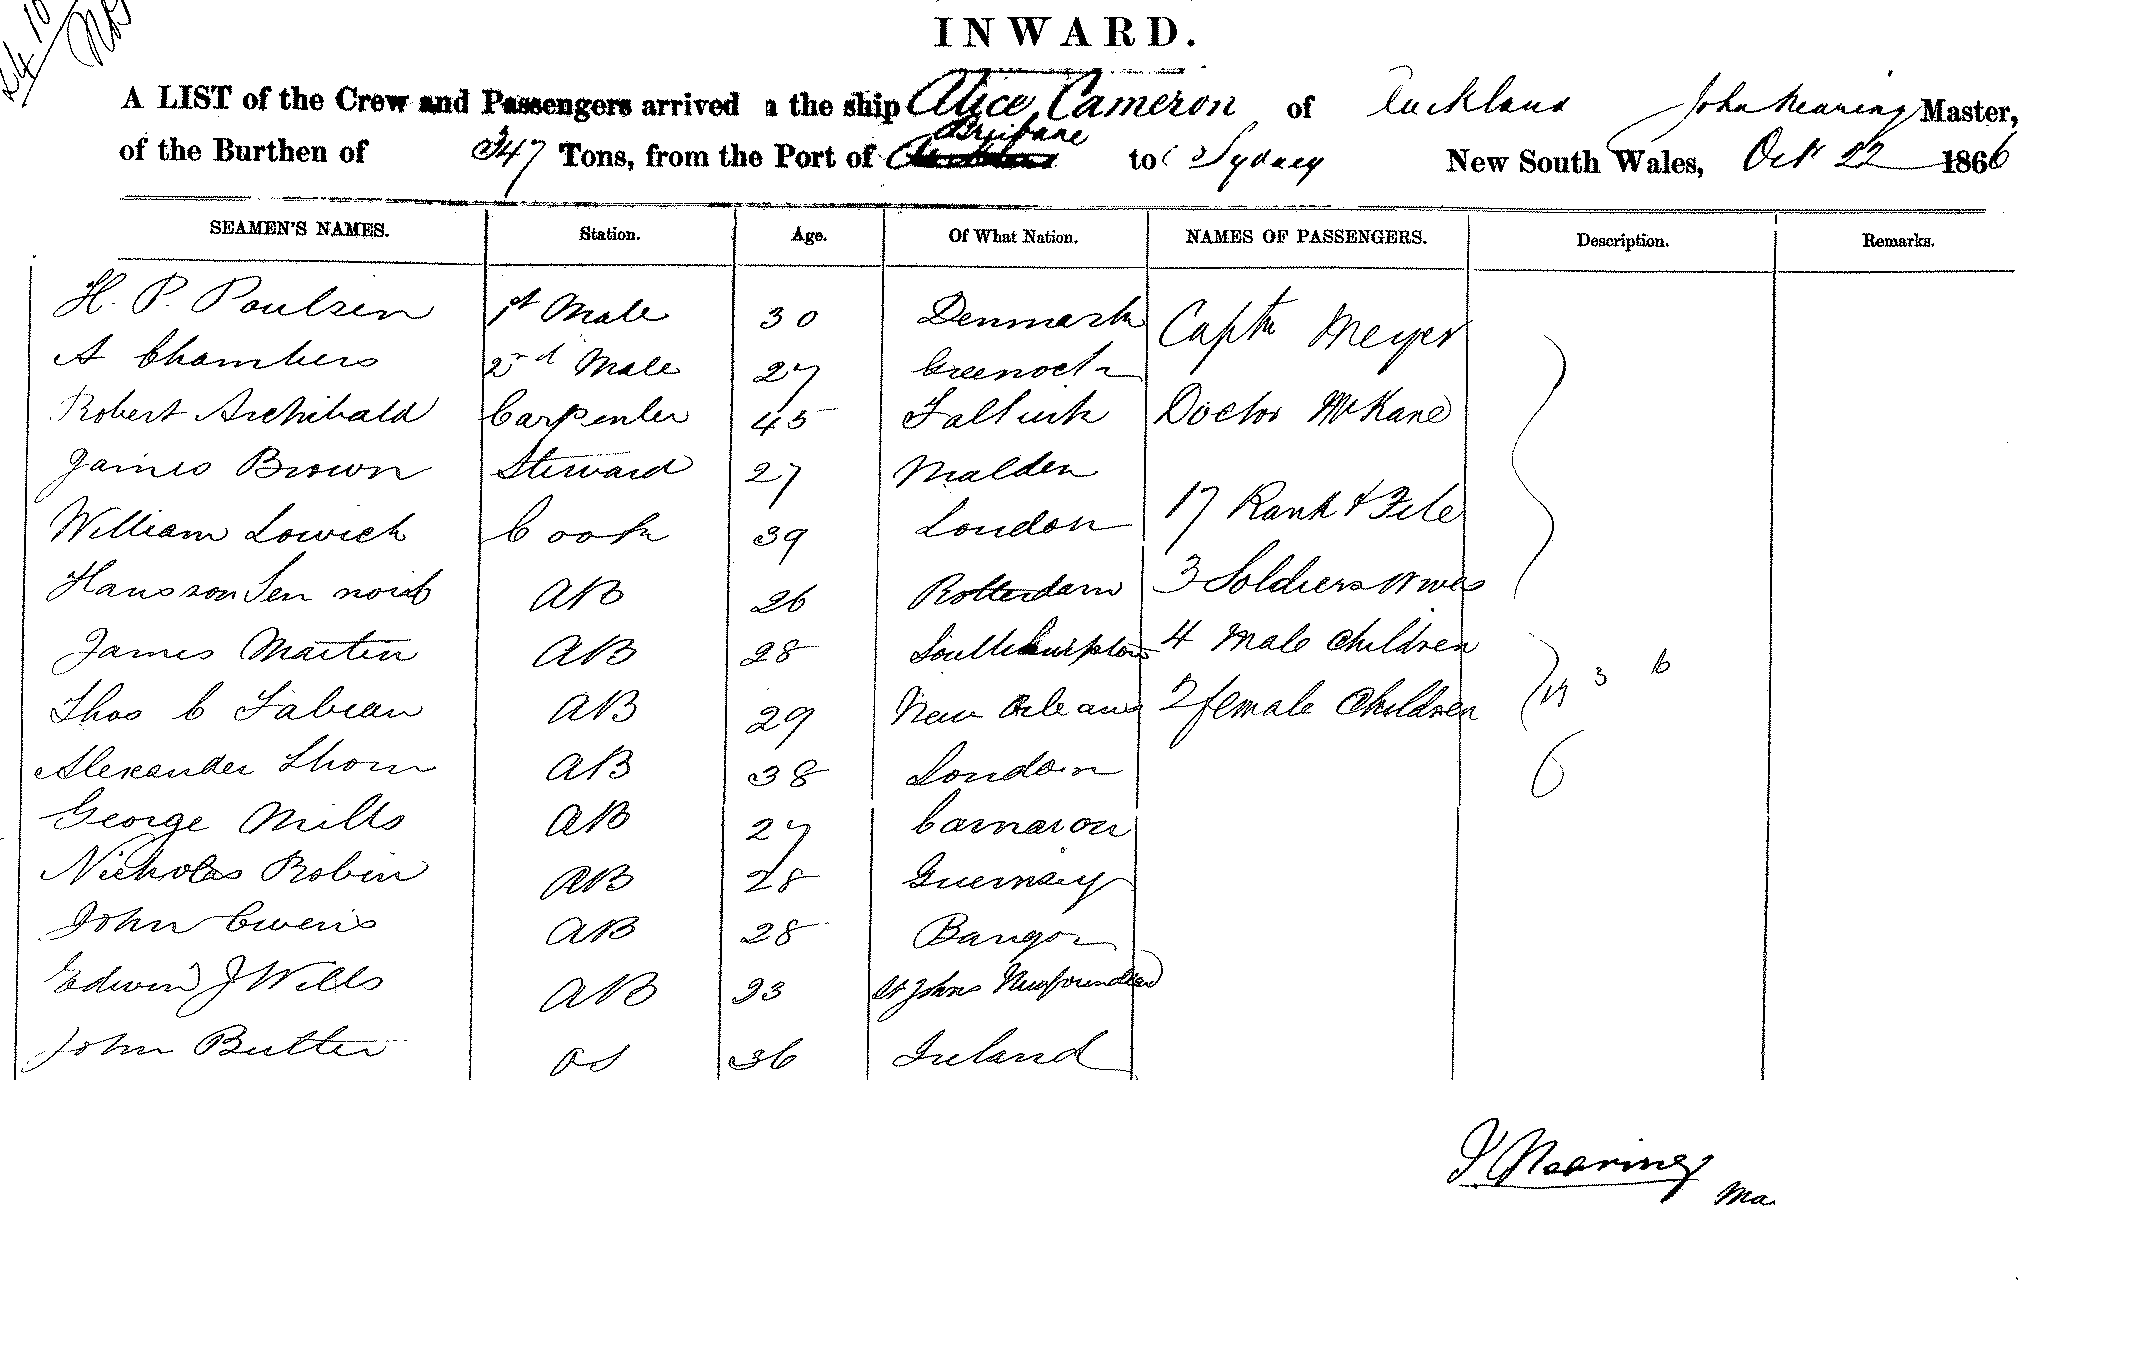 24/10
INWARD.
A LIST of the Crew and Passengers arrived the ship Alice Cameron of Auckland John Nearing Master,
of the Burthen of 347 Tons, from the Port of Brisbane to Sydney New South Wales, Oct 22 1866
SEAMEN'S NAMES. Station. Age. Of What Nation. NAMES OF PASSENGERS. Description. Remarks.
H. P. Poulsen 1st Mate 30 Denmark Captn Meyer
A Chambers 2nd Mate 27 Greenock
Robert Archibald Carpenter 45 Falkirk Doctor McKane
James Brown Steward 27 Malden
William Lowick Cook 39 London 17 Rank & File
AB 26 Rotterdam 3 Soldiers Wives
James Martin AB 28 Southampton 4 Male Children
Thos C Fabian AB 29 New Orleans 2 female Children 3 6
Alexander Thom AB 38 London 6
George Mills AB 27 Carnarvon
Nicholas Robin AB 28 Guernsey
John Owens AB 28 Bangor
Edwin J Wills AB 23 St Johns Newfoundland
John Butler OS 36 Ireland
J Nearing
Ma.